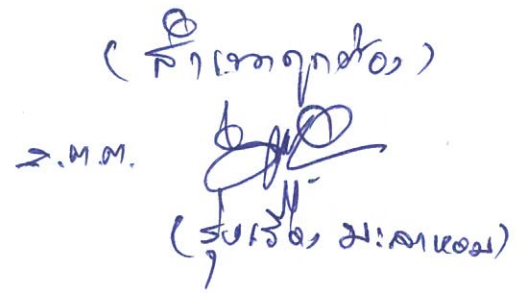 (สำเนาถูกต้อง)
ร.ต.ต.
(รุ่งเรือง มะลาหอม)